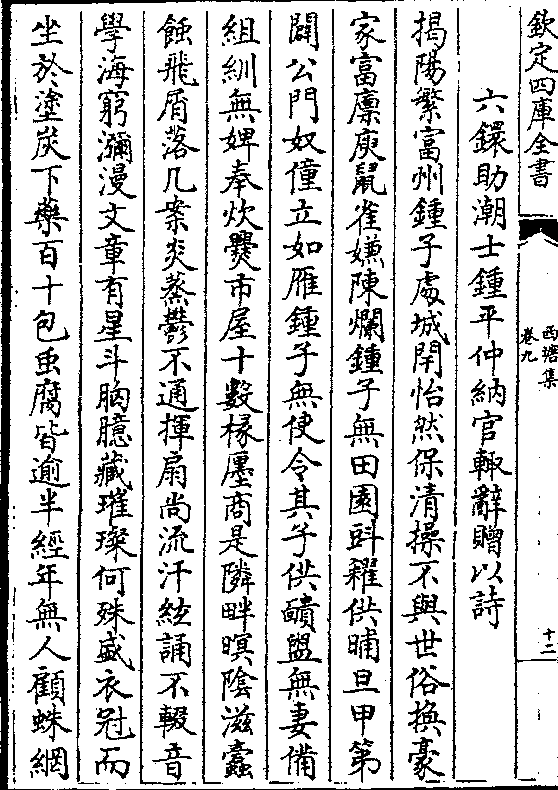 欽定四庫全書
西塘集
卷九
十二
六鐶助潮士鍾平仲納官輙辭贈以詩
揭陽繁富州鍾子處城閈怡然保清操不與世俗換豪
家富廪庾鼠雀嫌陳爛鍾子無田園㪷糴供晡旦甲第
闢公門奴僮立如雁鍾子無使令其子供靧盥無妻備
組紃無婢奉炊爨市屋十數椽廛商是隣畔暝陰滋蠧
蝕飛屑落几案炎蒸鬱不通揮扇尚流汗絃誦不輟音
學海窮瀰漫文章有星斗胸臆藏璀璨何殊盛衣冠而
坐於塗炭下藥百十包虫腐皆逾半經年無人顧蛛網